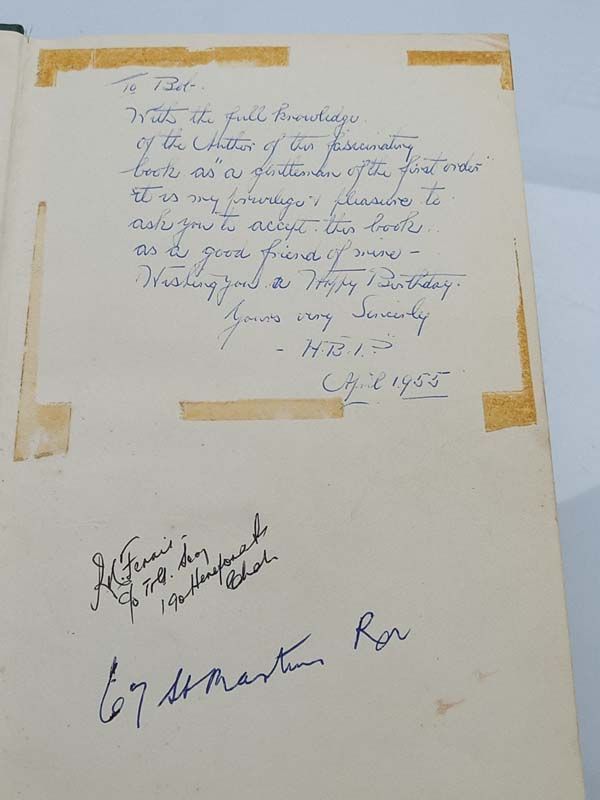 To Bob-
With the full knowledge
of the Author of this fascinating
book as "a gentleman of the first order"
it is my privilege & pleasure to
ask you to accept this book
as a good friend of mine -
Wishing you a Happy Birthday.
Yours very Sincerely
- H.B.I.P
April 1955
c/o
190 Hereford
67 St Martins